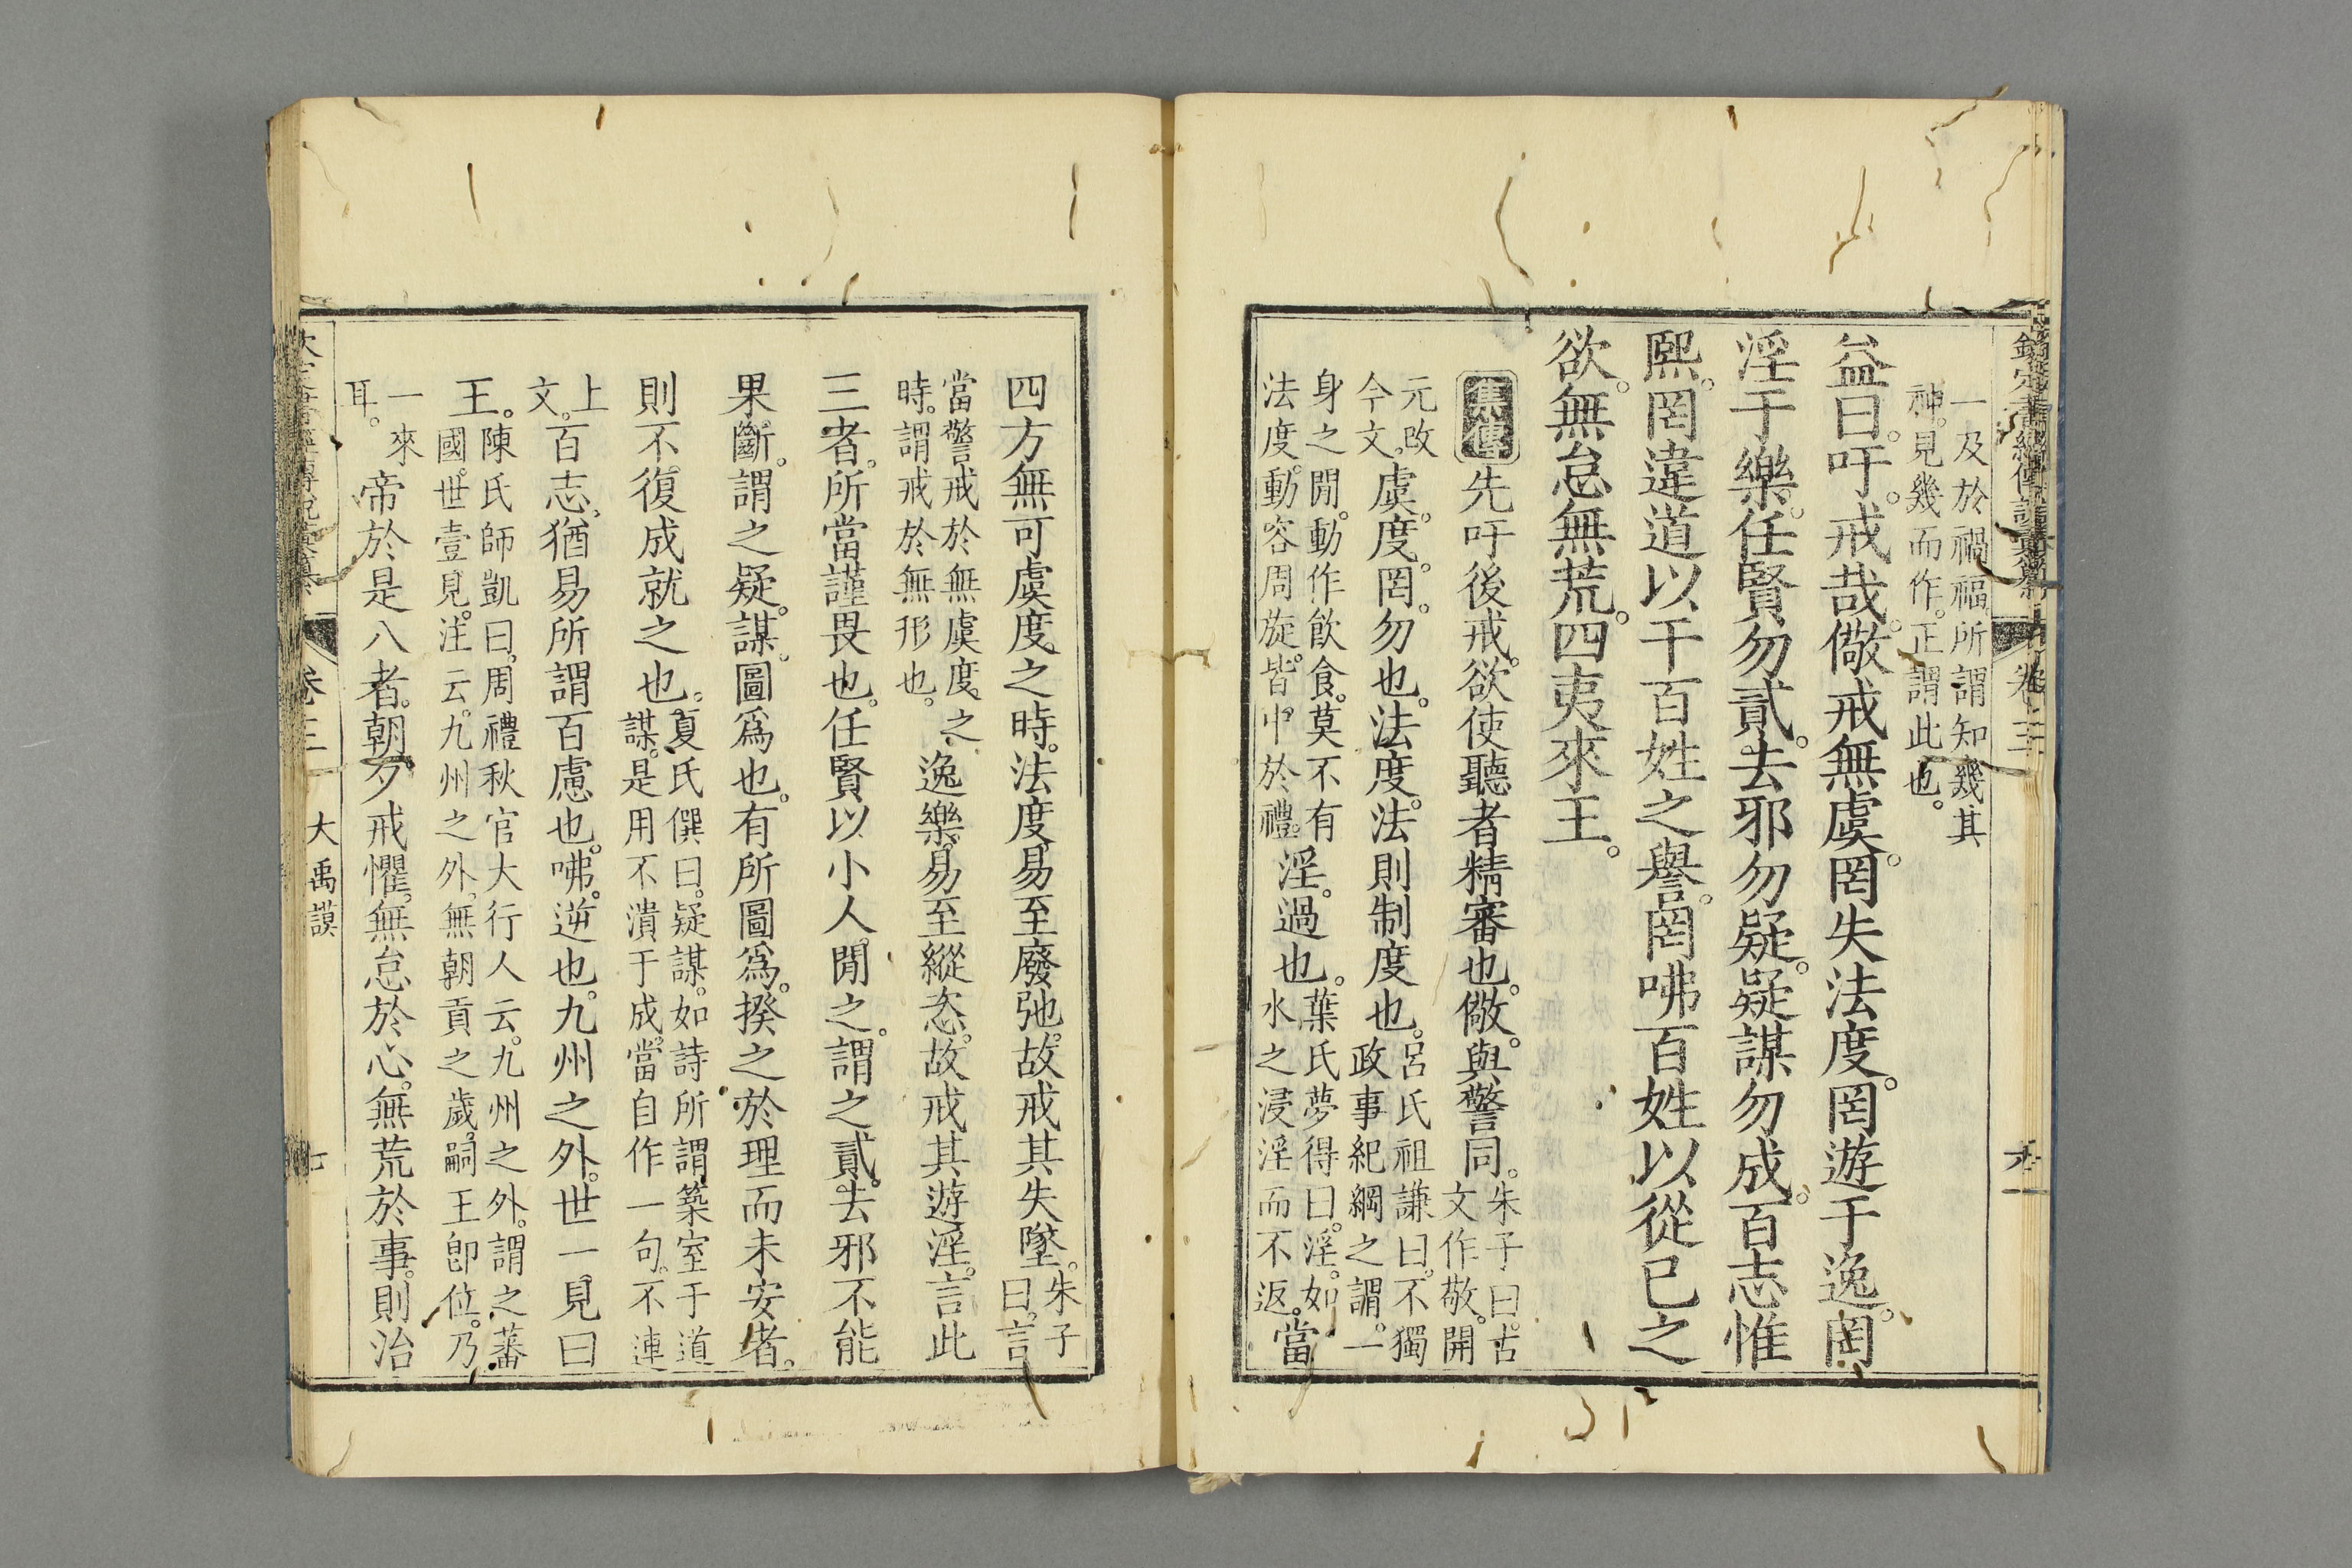 一及於禍福所謂知幾其
神。見幾而作。正謂此也。
益曰。吁。戒哉。儆戒無虞。罔失法度。罔遊于逸。罔
淫于樂。任賢勿貳。去邪勿疑。疑謀勿成。百志惟
熙。罔違道以干百姓之譽。罔咈百姓以從已之
欲。無怠無荒。四夷來王。
集傳
先吁後戒。欲使聽者精審也。儆。與警同。
朱子曰。古
文作敬。開
元改
今文。
虞。度。罔。勿也。法度。法則制度也。
呂氏祖謙曰。不獨
政事紀綱之謂。一
身之閒。動作飲食。莫不有
法度。動容周旋。皆中於禮。
淫。過也。
葉氏夢得曰。淫。如
水之浸淫而不返。
當
四方無可虞度之時。法度易至廢弛。故戒其失墜。
朱子
曰。言
當警戒於無虞度之
時。謂戒於無形也。
逸樂易至縱恣。故戒其遊淫。言此
三者。所當謹畏也。任賢以小人閒之。謂之貳。去邪不能
果斷。謂之疑。謀。圖爲也。有所圖爲。揆之於理而未安者。
則不復成就之也。
夏氏僎曰。疑謀。如詩所謂築室于道
謀。是用不潰于成。當自作一句。不連
上
文。
百志。猶易所謂百慮也。咈。逆也。九州之外。世一見曰
王。
陳氏師凱曰。周禮秋官大行人云。九州之外。謂之蕃
國。世壹見。注云。九州之外。無朝貢之歲。嗣王卽位。乃
一來
耳。
帝於是八者。朝夕戒懼。無怠於心。無荒於事。則治
卷三
大禹謨
七